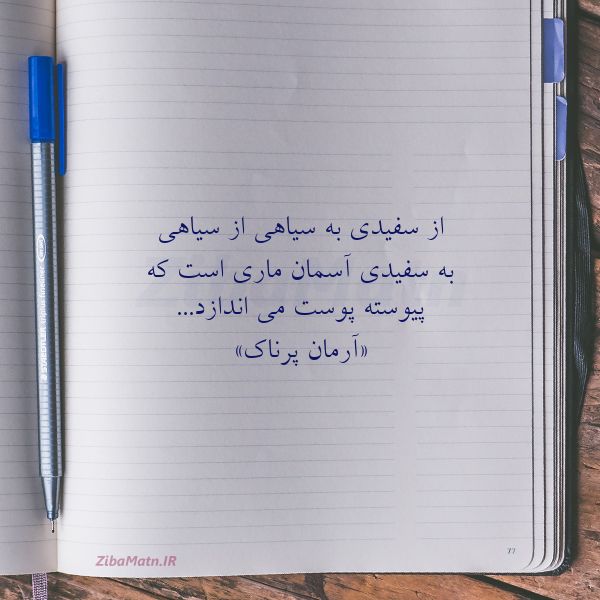 از سفیدی به سیاهی از سیاهی
به سفیدی آسمان ماری است که
پیوسته پوست می اندازد...
«آرمان پرناک»
ZibaMatn.IR
ZibaMatn.IR
77
STAEDTLER triplus fineliner